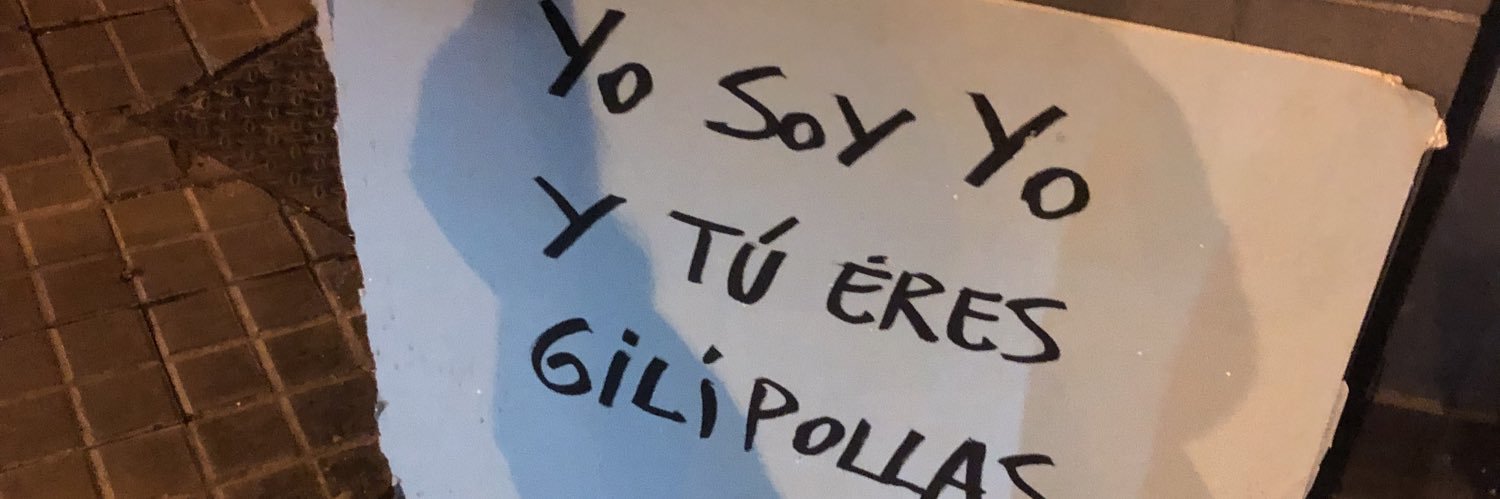 YO SOY YO
Y TÚ ÉRES
GiLiPOLLAS